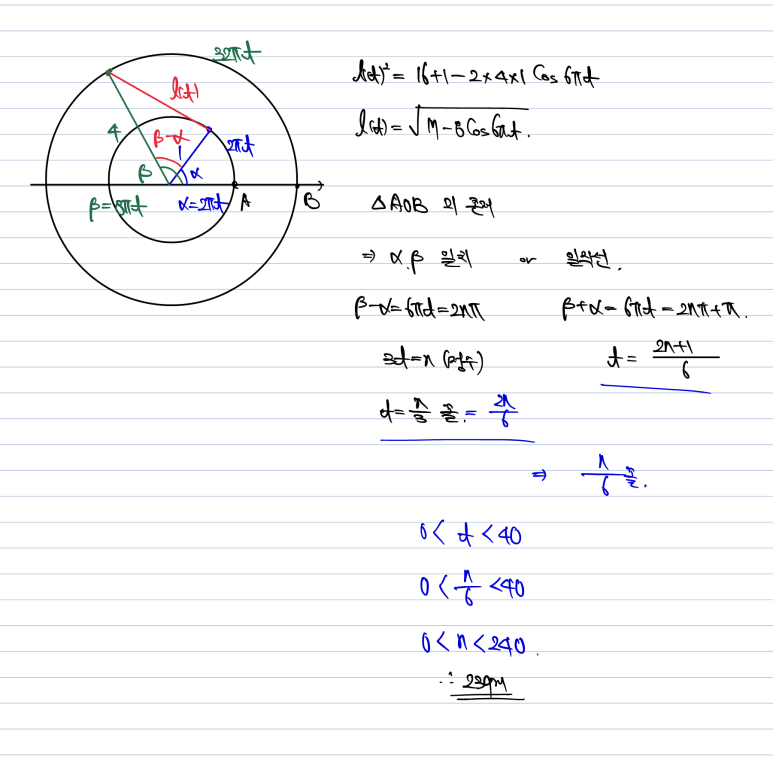 32πt
l(t)
4
β-α
1
2πt
β
α
β=8πt
α=2πt
A
B
l(t)² = 16+1-2×4×1 Cos 6πt
l(t) = √17-8Cos6πt.
△AOB 의 존재
⇒ α.β 일치 or 일직선.
β-α=6πt=2nπ
β+α=6πt=2nπ+π.
3t=n (정수)
t= (2n+1)/6
t= n/3 초. = 2n/6
⇒ n/6 초.
0< t <40
0< n/6 <40
0<n<240.
∴ 239개